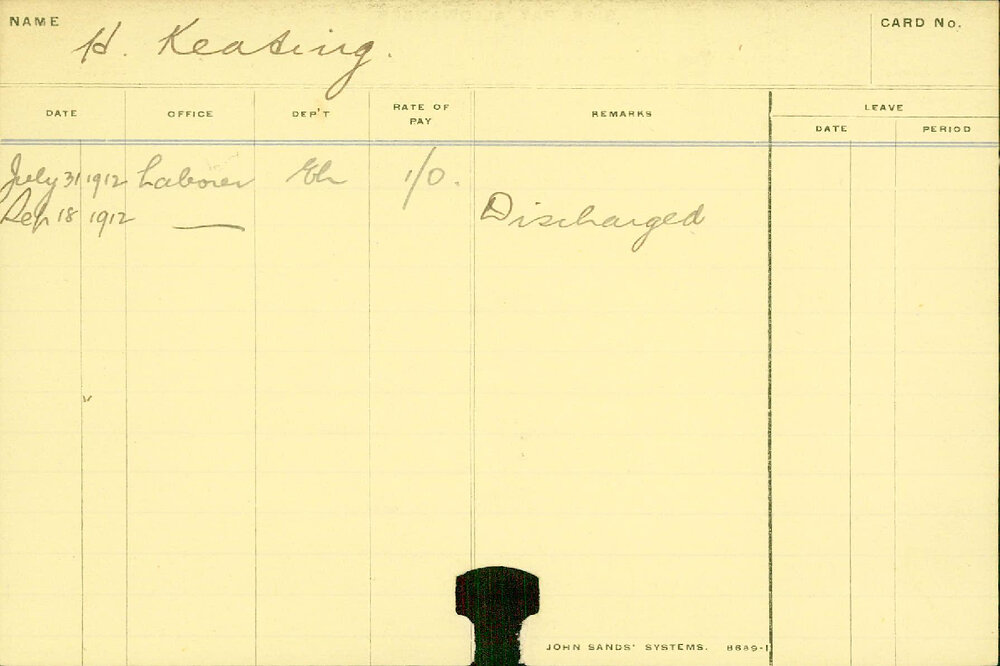 NAME H. Keating. CARD No.
DATE OFFICE DEP'T RATE OF PAY REMARKS LEAVE
DATE PERIOD
July 31 1912 Laborer 1/0.
Sep 18 1912 — Discharged
JOHN SANDS' SYSTEMS. 8689-1